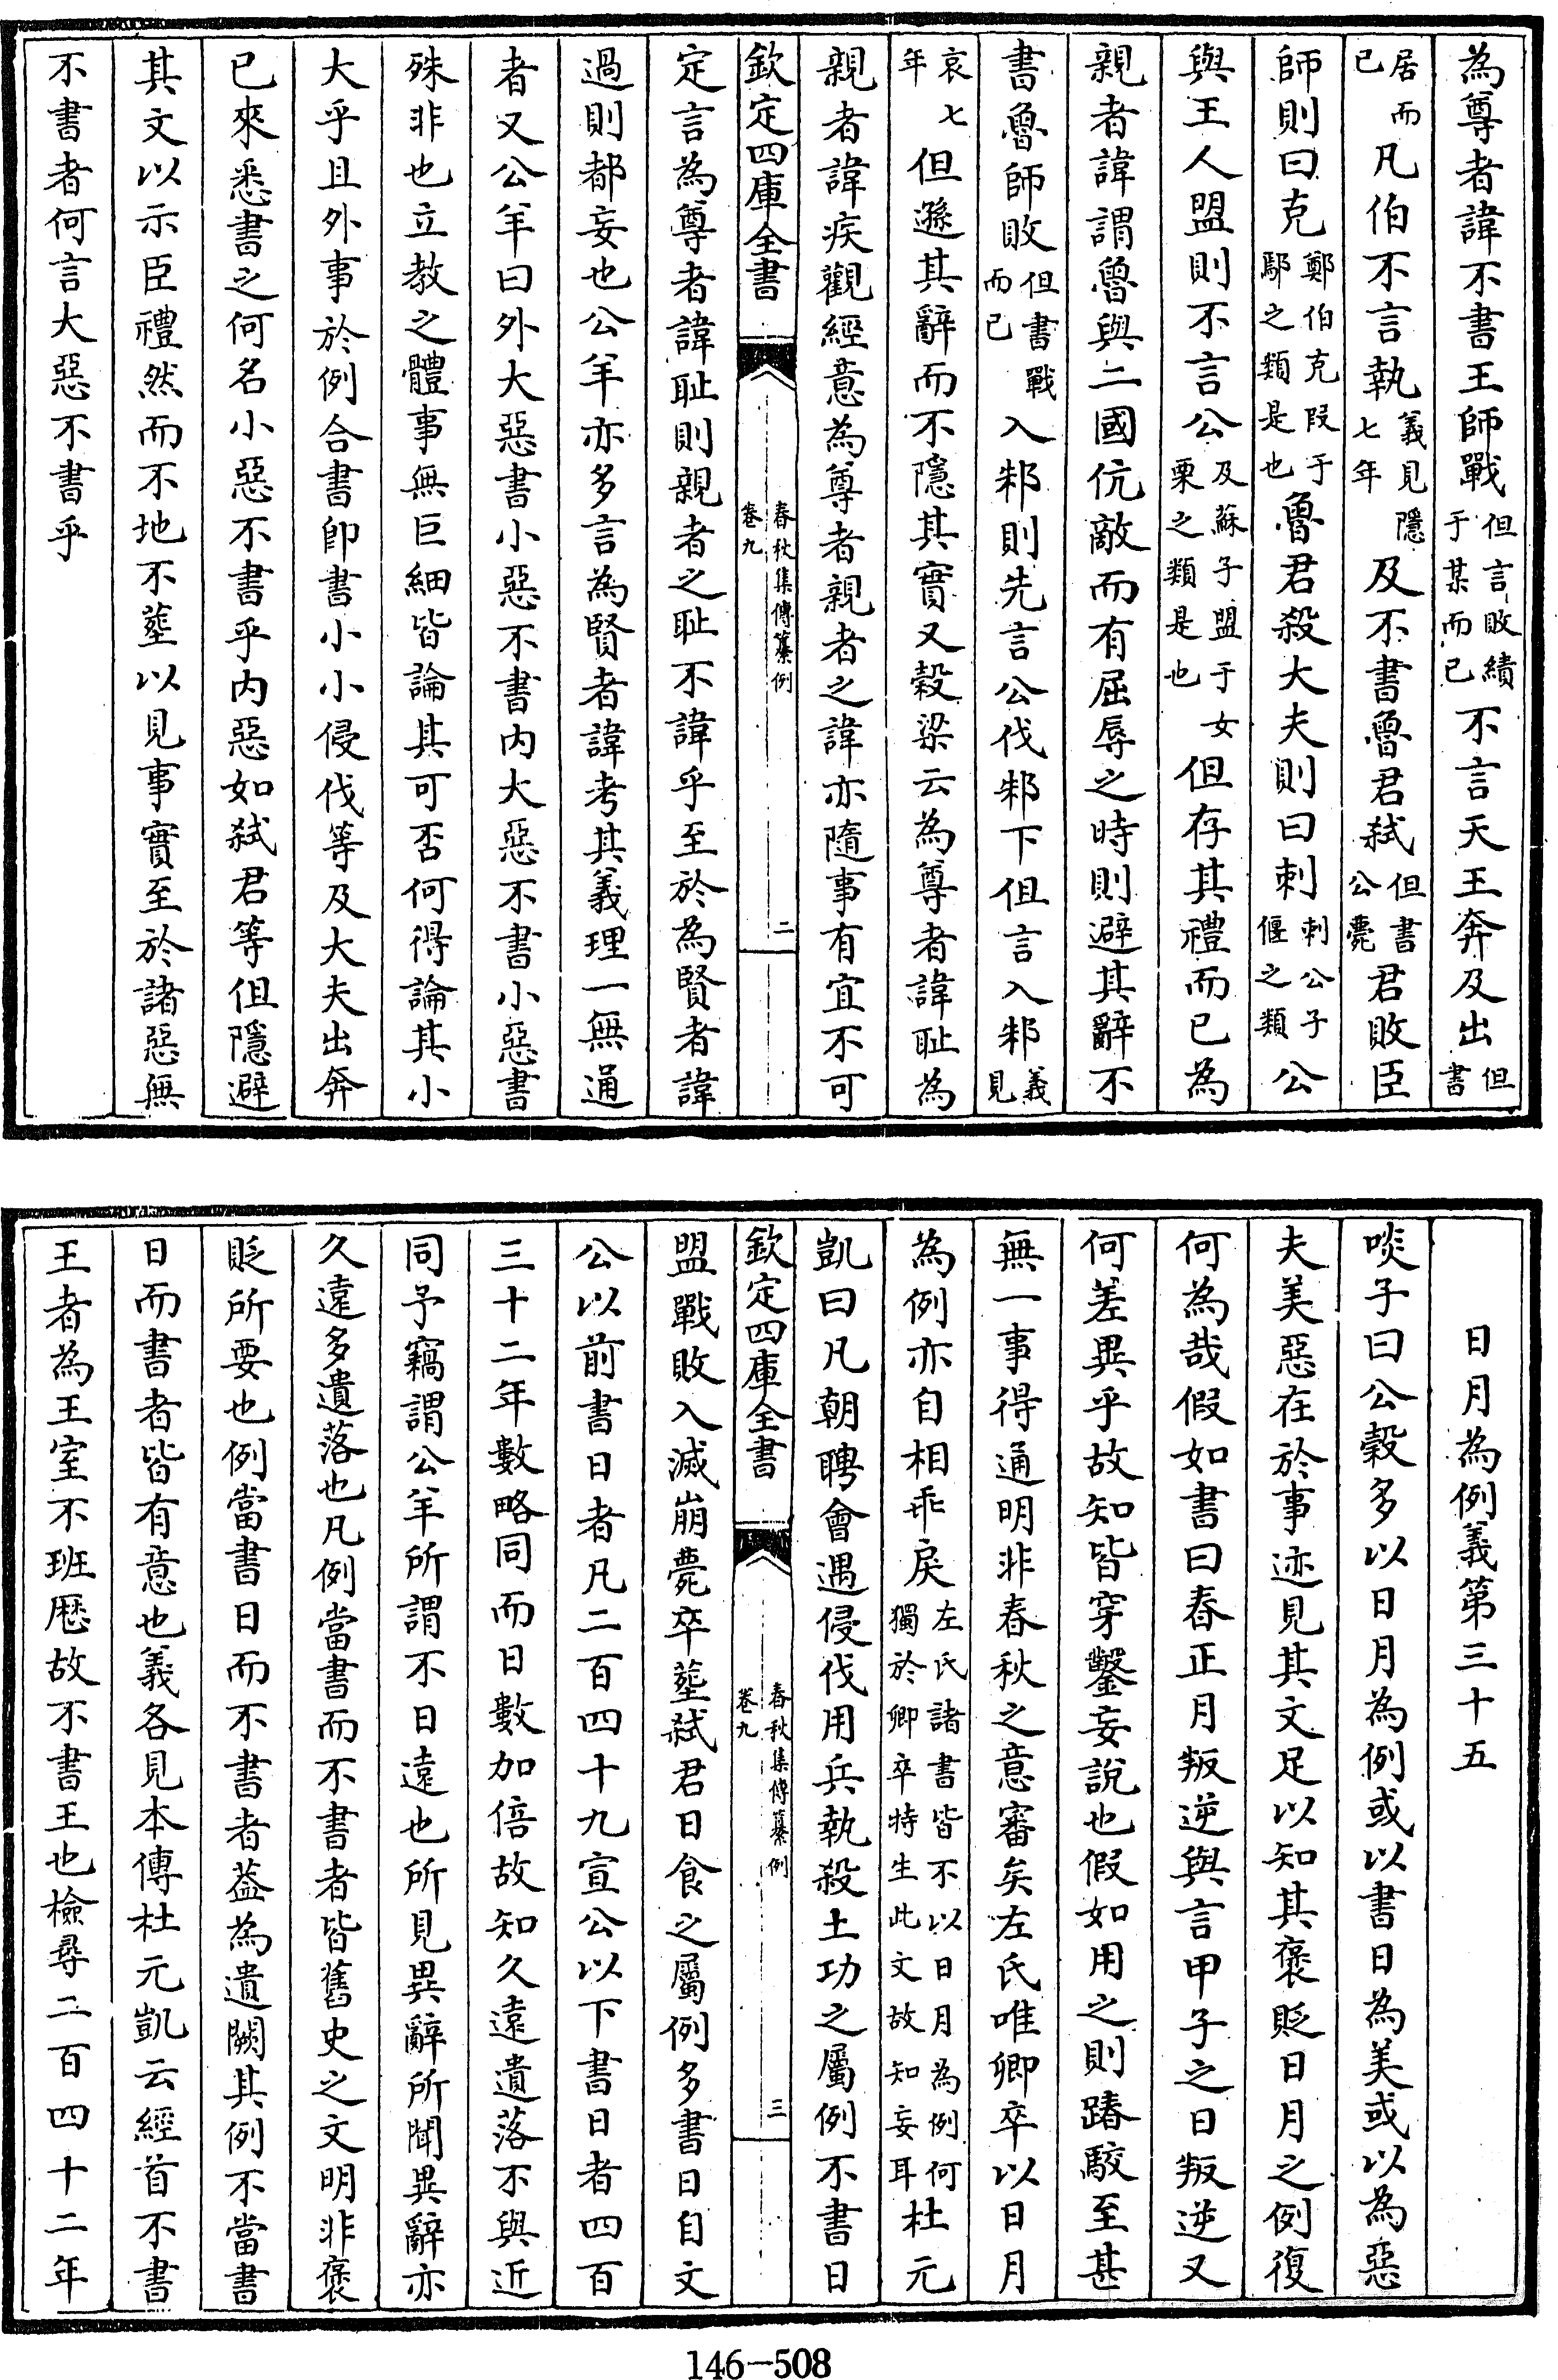 為尊者諱不書王師戰但言敗績于某而已不言天王奔及出但書
居而已凡伯不言執義見隱七年及不書魯君弑但書公薨君敗臣
師則曰克鄭伯克段于鄢之類是也魯君殺大夫則曰刺刺公子偃之類公
與王人盟則不言公及蘇子盟于女栗之類是也但存其禮而已為
親者諱謂魯與二國伉敵而有屈辱之時則避其辭不
書魯師敗但書戰而已入邾則先言公伐邾下但言入邾義見
哀七年但遜其辭而不隱其實又穀梁云為尊者諱耻為
親者諱疾觀經意為尊者親者之諱亦隨事有宜不可
欽定四庫全書
春秋集傳纂例
卷九
二
定言為尊者諱耻則親者之耻不諱乎至於為賢者諱
過則都妄也公羊亦多言為賢者諱考其義理一無通
者又公羊曰外大惡書小惡不書内大惡不書小惡書
殊非也立教之體事無巨細皆論其可否何得論其小
大乎且外事於例合書即書小小侵伐等及大夫出奔
已來悉書之何名小惡不書乎内惡如弑君等但隱避
其文以示臣禮然而不地不塟以見事實至於諸惡無
不書者何言大惡不書乎
日月為例義第三十五
啖子曰公穀多以日月為例或以書日為美或以為惡
夫美惡在於事迹見其文足以知其褒貶日月之例復
何為哉假如書曰春正月叛逆與言甲子之日叛逆又
何差異乎故知皆穿鑿妄說也假如用之則踳駮至甚
無一事得通明非春秋之意審矣左氏唯卿卒以日月
為例亦自相乖戾左氏諸書皆不以日月為例何獨於卿卒特生此文故知妄耳杜元
凱曰凡朝聘會遇侵伐用兵執殺土功之屬例不書日
欽定四庫全書
春秋集傳纂例
卷九
三
盟戰敗入滅崩薨卒塟弑君日食之屬例多書日自文
公以前書日者凡二百四十九宣公以下書日者四百
三十二年數略同而日數加倍故知久遠遺落不與近
同予竊謂公羊所謂不日遠也所見異辭所聞異辭亦
久遠多遺落也凡例當書而不書者皆舊史之文明非褒
貶所要也例當書日而不書者葢為遺闕其例不當書
日而書者皆有意也義各見本傳杜元凱云經首不書
王者為王室不班厯故不書王也檢尋二百四十二年
146-508